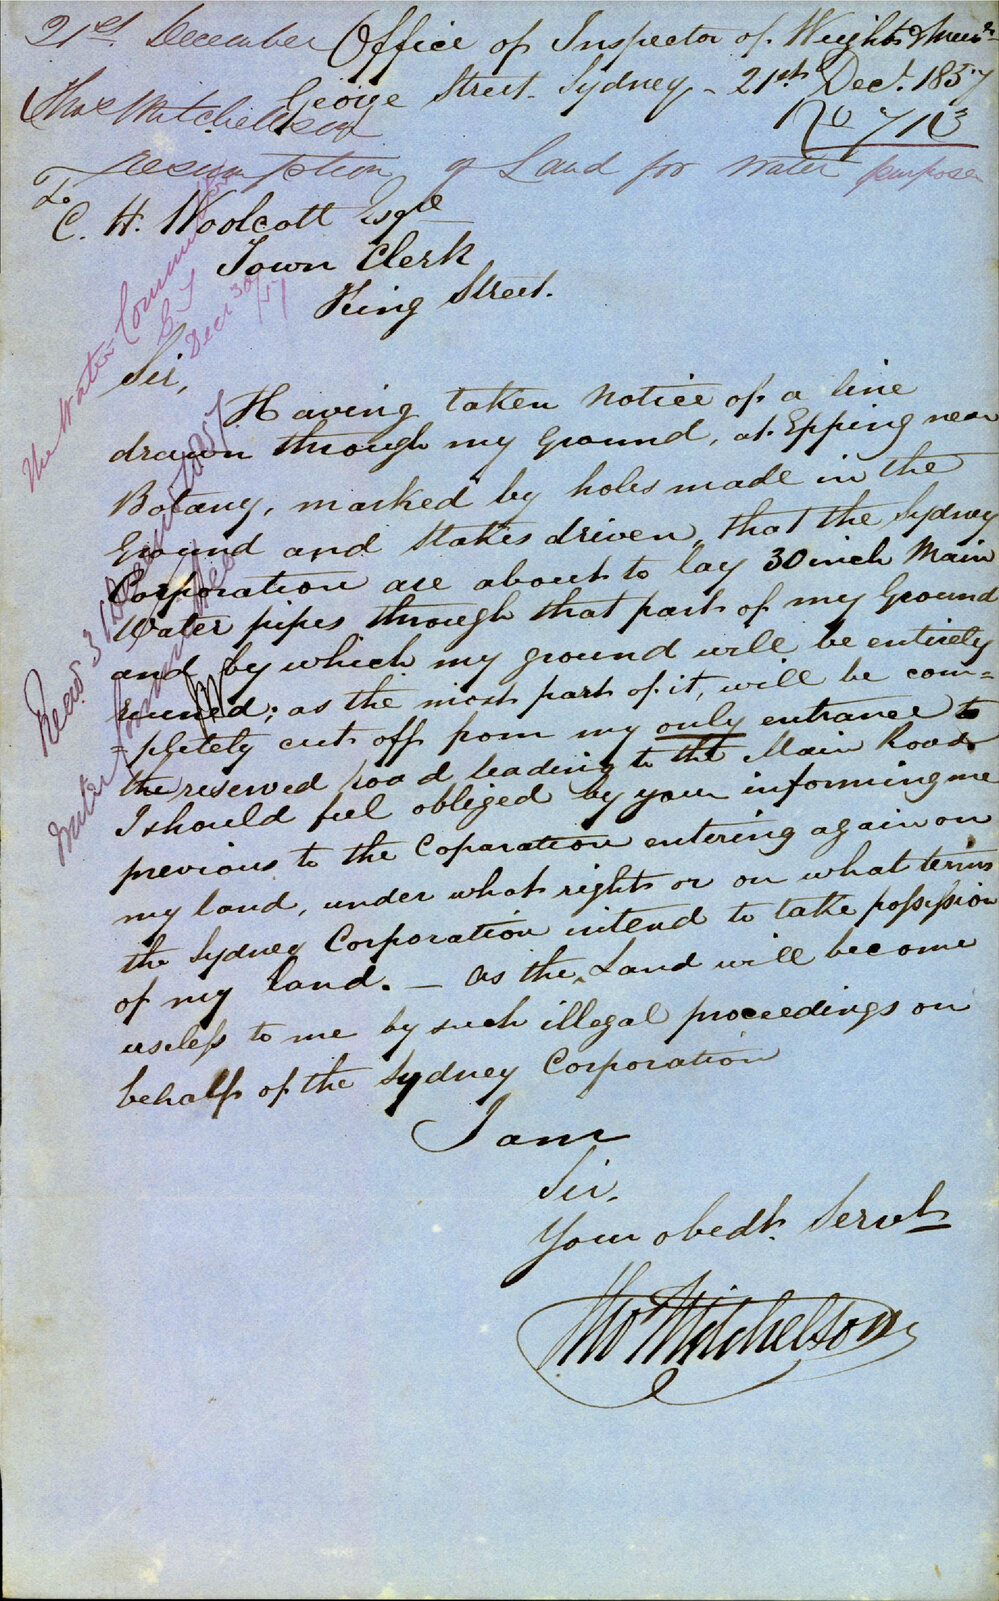 21st December
Office of Inspector of Weights & Meas
George Street. Sydney - 21st Decr. 1857
Thos Mitchellson
No 7113
resumption of Land for Water purposes
To
C. H. Woolcott Esqre
Town Clerk
King Street.
The Water
Decr 30/57
Read 31
Sir,
Having taken notice of a line
drawn through my Ground, at Epping near
Botany, marked by holes made in the
Ground and Stakes driven, that the Sydney
Corporation are about to lay 30 inch Main
Water pipes through that part of my Ground
and by which my ground will be entirely
; as the most part of it, will be com=
=pletely cut off from my only entrance to
the reserved road leading to the Main Road
I should feel obliged by your informing me
previous to the Coparation entering again on
my land, under what right or on what terms
the Sydney Corporation intend to take possession
of my land. — as the Land will become
useless to me by such illegal proceedings on
behalf of the Sydney Corporation
I am
Sir.
Your obedt. Servt
Tho Mitchelson